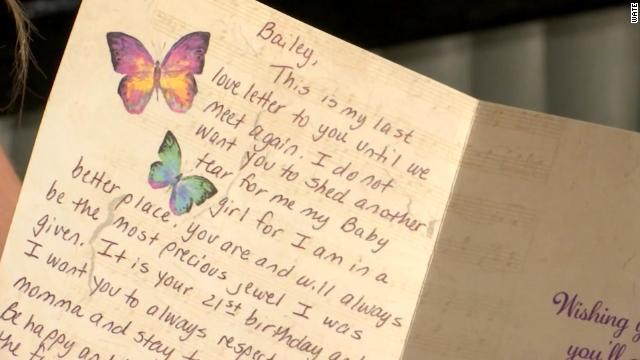 Bailey,
This is my last
love letter to you until we
meet again. I do not
want you to shed another
tear for me my Baby
girl for I am in a
better place. you are and will always
be the most precious jewel I was
given. It is your 21st birthday and
I want you to always respect
momma and stay
Be happy and
the
Wishing
you'll
WATE